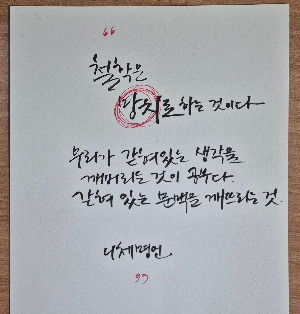 “
철학은
망치로 하는 것이다
우리가 갇혀있는 생각을
깨버리는 것이 공부다
갇혀 있는 문맥을 깨뜨리는 것.
니체명언
”